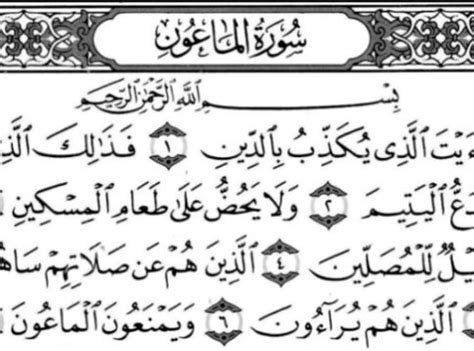 سُورَةُ المَاعُونِ
بِسْمِ اللَّهِ الرَّحْمَٰنِ الرَّحِيمِ
يْتَ الَّذِي يُكَذِّبُ بِالدِّينِ ١ فَذَٰلِكَ الَّذِ
دُعُّ الْيَتِيمَ ٢ وَلَا يَحُضُّ عَلَىٰ طَعَامِ الْمِسْكِينِ
يْلٌ لِّلْمُصَلِّينَ ٤ الَّذِينَ هُمْ عَن صَلَاتِهِمْ سَاهُ
الَّذِينَ هُمْ يُرَآءُونَ ٦ وَيَمْنَعُونَ الْمَاعُونَ